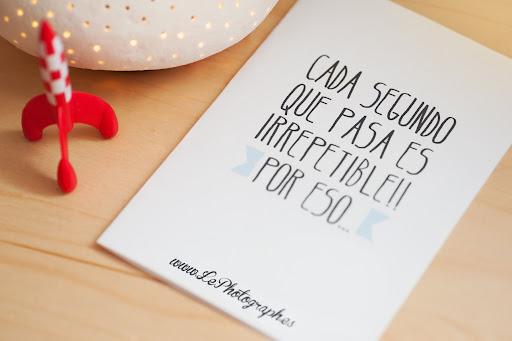 CADA SEGUNDO
QUE PASA ES
IRREPETIBLE!!
POR ESO...
www.LePhotographes